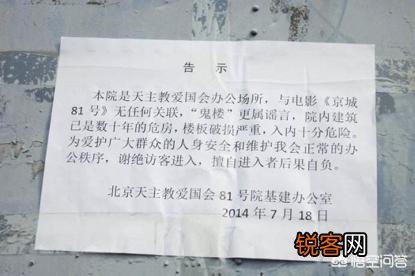 告 示
本院是天主教爱国会办公场所，与电影《京城
81号》无任何关联，“鬼楼”更属谣言，院内建筑
已是数十年的危房，楼板破损严重，入内十分危险。
为爱护广大群众的人身安全和维护我会正常的办
公秩序，谢绝访客进入，擅自进入者后果自负。
北京天主教爱国会81号院基建办公室
2014年7月18日
锐客网
悟空问答